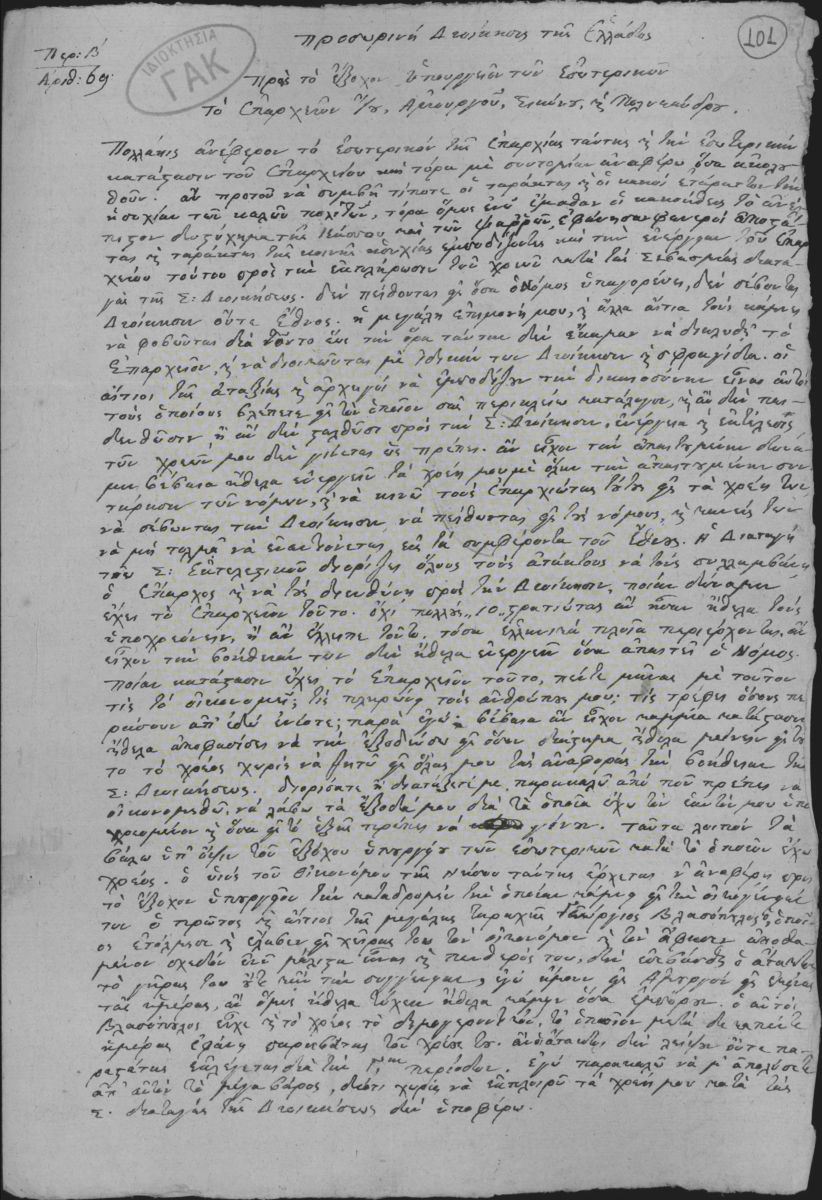 Προσωρινή Διοίκησις τῆς Ἑλλάδος
101
Περ: Β
Ἀριθ: 69
ΙΔΙΟΚΤΗΣΙΑ
ΓΑΚ
Πρὸς τὸ ἔξοχον Ὑπουργεῖον τῶν Ἐσωτερικῶν
Τὸ Ἐπαρχεῖον Ἀμουργοῦ, Σικίνου, ἢ Πολυκάνδρου.
Πολλάκις ἀνέφερον τὸ ἐσωτερικὸν τῆς Ἐπαρχίας ταύτης ἢ τὴν ἐσωτερικὴν
κατάστασιν τοῦ Ἐπαρχείου καὶ τόρα μὲ συντομίαν ἀναφέρω ὅσα ἀκολου
θοῦν. ἂν προτοῦ νὰ συμβῇ τίποτε οἱ ταράκται ἢ οἱ κακοὶ ἐτάραττον τὴν
ἡσυχίαν τῶν καλῶν πολιτῶν, τόρα ὅμως ἐνῶ ἔμαθαν οἱ κακοήθεις τὸ ἀνέλ
πιστον δυστύχημα τῆς Κάσσου καὶ τῶν Ψαρῶν, ἐφάνησαν φανεροὶ
τῆς κοινῆς ἡσυχίας ἐμποδίζοντες καὶ τὴν ἐνέργειαν τοῦ Ἐπαρ
χείου τούτου πρὸς τὴν ἐκπλήρωσιν τοῦ χρέους κατὰ τὰς Σεβασμίας διατα
γὰς τῆς Σ: Διοικήσεως. δὲν πείθονται εἰς ὅσα ὁ Νόμος ὑπαγορεύει, δὲν σέβονται
Διοίκησιν οὔτε Ἔθνος. ἡ μεγάλη ἐπιμονή μου, ἢ ἄλλα αἴτια τοὺς κάμνει
νὰ φοβοῦνται διὰ τοῦτο ἕως τὴν ὥρα ταύτην δὲν ἔκαμαν νὰ διαλυθῇ τὸ
Ἐπαρχεῖον, ἢ νὰ διοικῶνται μὲ ἰδικήν των Διοίκησιν ἢ σφραγίδα. οἱ
αἴτιοι τῆς ἀταξίας ἢ ἀρχηγοὶ νὰ ἐμποδίζουν τὴν δικαιοσύνην εἶναι αὐτοὶ
τοὺς ὁποίους βλέπετε εἰς τὸν ὁποῖον σᾶς περικλείω κατάλογον, ἢ ἂν δὲν παι
δευθῶσιν, ἢ ἂν δὲν σταλθῶσι πρὸς τὴν Σ: Διοίκησιν, ἐνέργεια ἢ ἐκτέλεσις
τῶν χρεῶν μου δὲν γίνεται ὡς πρέπει. ἂν εἶχον τὴν ἀπαιτουμένην δύνα
μιν βέβαια ἤθελα ἐνεργεῖν τὰ χρέη μου μὲ ὅλην τὴν ἀπαιτουμένην συν
τήρησιν τῶν νόμων, ἢ νὰ κινῶ τοὺς Ἐπαρχιώτας τούτους εἰς τὰ χρέη των
νὰ σέβωνται τὴν Διοίκησιν, νὰ πείθωνται εἰς τοὺς νόμους, ἢ κανείς των
νὰ μὴ τολμᾷ νὰ ἐναντιώνεται εἰς τὰ συμφέροντα τοῦ Ἔθνους. Ἡ Διαταγὴ
τοῦ Σ: Ἐκτελεστικοῦ διορίζει ὅλους τοὺς ἀτάκτους νὰ τοὺς συλλαμβάνῃ
ὁ Ἔπαρχος ἢ νὰ τοὺς διευθύνῃ πρὸς τὴν Διοίκησιν, ποίαν δύναμιν
ἔχει τὸ Ἐπαρχεῖον τοῦτο. ὄχι πολλοὺς, 10, στρατιώτας ἂν ἦσαν ἤθελα τοὺς
ὑποχρεώνειν, ἢ ἂν ἔλλειπε τοῦτο, τόσα ἑλληνικὰ πλοῖα περιέρχονται, ἂν
εἶχον τὴν βοήθειάν των δὲν ἤθελα ἐνεργεῖν ὅσα ἀπαιτεῖ ὁ Νόμος.
ποίαν κατάστασιν ἔχει τὸ Ἐπαρχεῖον τοῦτο, πέντε μῆνας μὲ τοῦτον
τὶς τὸ οἰκονομεῖ; τὶς πληρώνει τοὺς ἀνθρώπους μου; τὶς τρέφει ὅσους πε
ράσουν ἀπ' ἐδῶ ἐνίοτε; παρὰ ἐγώ; βέβαια ἂν εἶχον καμμία κατάστασιν
ἤθελα ἀποφασίσει νὰ τὴν ἐξοδεύσω εἰς ὅσον διάστημα ἤθελα μείνειν εἰς τοῦ
το τὸ χρέος χωρὶς νὰ ζητῶ εἰς ὅλας μου τὰς ἀναφορὰς τὴν βοήθειαν τῆς
Σ: Διοικήσεως. διορίσατε ἢ διατάξετέ με παρακαλῶ ἀπὸ ποῦ πρέπει νὰ
οἰκονομηθῶ, νὰ λάβω τὰ ἔξοδά μου διὰ τὰ ὁποῖα ἔχω τὸν ἑαυτόν μου ὑπο
χρεωμένον ἢ ὅσα εἰς τὸ ἑξῆς πρέπει νὰ γίνουν. ταῦτα λοιπὸν τὰ
βάλω ὑπ' ὄψιν τοῦ ἐξόχου ὑπουργείου τῶν ἐσωτερικῶν κατὰ τὸ ὁποῖον ἔχω
χρέος. ὁ υἱὸς τοῦ Οἰκονόμου τῆς Νήσου ταύτης ἔρχεται ν' ἀναφέρῃ πρὸς
τὸ ἔξοχον ὑπουργεῖον τὴν καταδρομὴν τὴν ὁποίαν κάμνει εἰς τὴν οἰκογένειάν
των ὁ πρῶτος ἢ αἴτιος τῆς μεγάλης ταραχῆς Γεώργιος Βλασόπουλος, ὁποῖ
ος ἐτόλμησε ἢ ἔλαβεν εἰς χεῖρας του τὸν οἰκονόμον ἢ τὸν ἄφησεν ἀποθα
μένον σχεδὸν ἐνῶ μάλιστα εἶναι ἢ πενθερός του, δὲν ἐσεβάσθη ὁ ἄτακτος
τὸ γῆρας του οὔτε κἂν τὴν συγγένειαν, ἐγὼ ἤμουν εἰς Ἀμουργὸν εἰς ἐκείνας
τὰς ἡμέρας, ἂν ὅμως ἤθελα τύχειν ἤθελα κάμειν ὅσα ἐμποροῦν. ὁ αὐτὸς
Βλασόπουλος εἶχε ἢ τὸ χρέος τὸ δημογεροντικόν, τὸ ὁποῖον μετὰ δεκαπέντε
ἡμέρας ἐφάνη παραβάτης τοῦ χρέους του. ἀντιστάτης δὲν λείπει οὔτε πα
ραστάτης ἐκλέγεται διὰ τὴν Γ περίοδον. Ἐγὼ παρακαλῶ νὰ μ' ἀπολύσετε
ἀπ' αὐτὸν τὸ μέγα βάρος, διότι χωρὶς νὰ ἐκπληρῶ τὰ χρέη μου κατὰ τὰς
Σ. διαταγὰς τῆς Διοικήσεως δὲν ὑποφέρω.